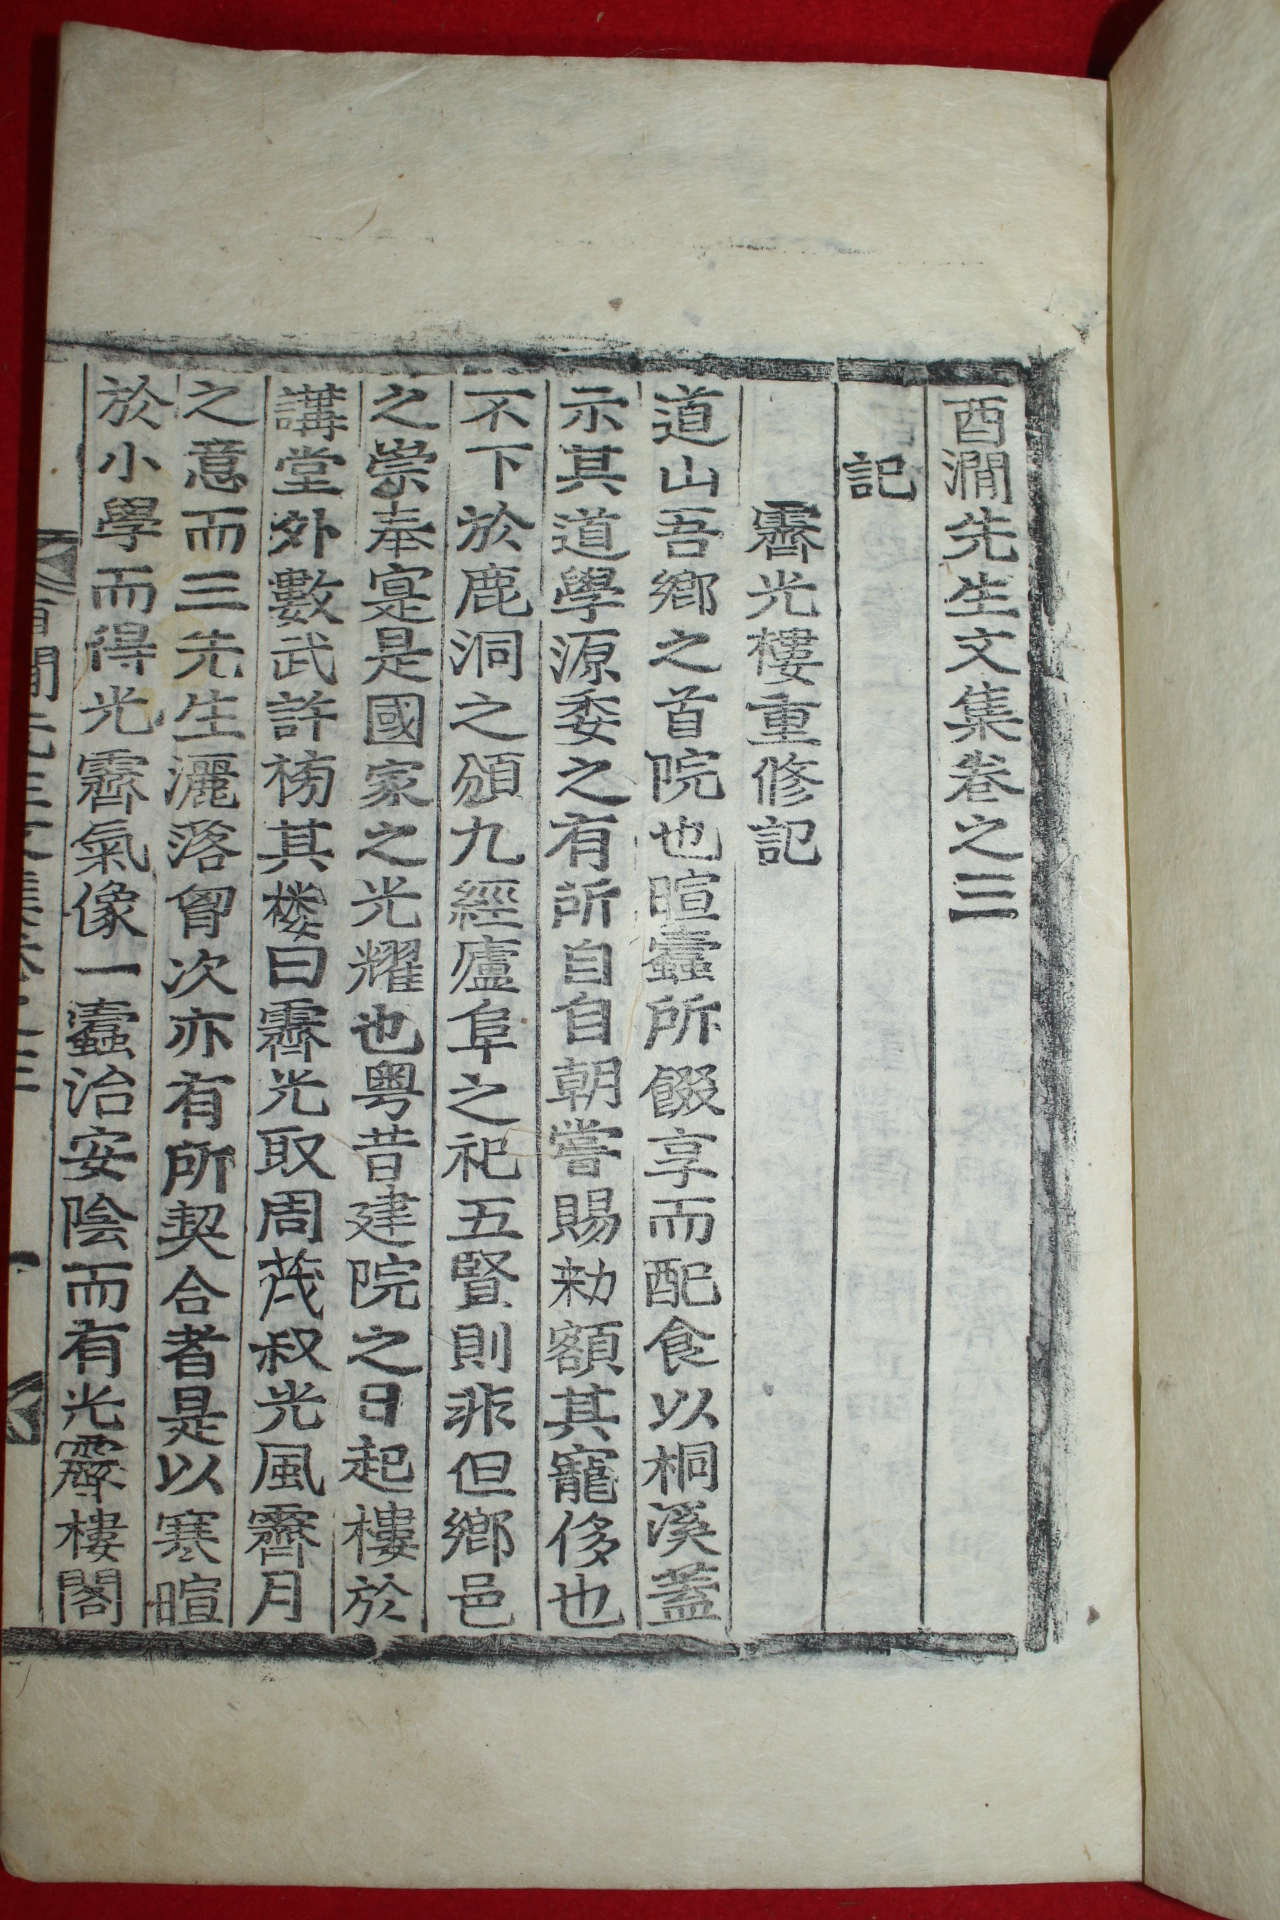 酉澗先生文集卷之三
記
霽光樓重修記
道山吾鄉之首院也暄蠹所餟享而配食以桐溪蓋
示其道學源委之有所自自朝嘗賜勑額其寵侈也
不下於鹿洞之頒九經廬阜之祀五賢則非但鄉邑
之崇奉寔是國家之光耀也粤昔建院之日起樓於
講堂外數武許榜其楼曰霽光取周茂叔光風霽月
之意而三先生灑落胷次亦有所契合者是以寒暄
於小學而得光霽氣像一蠹治安陰而有光霽樓閣